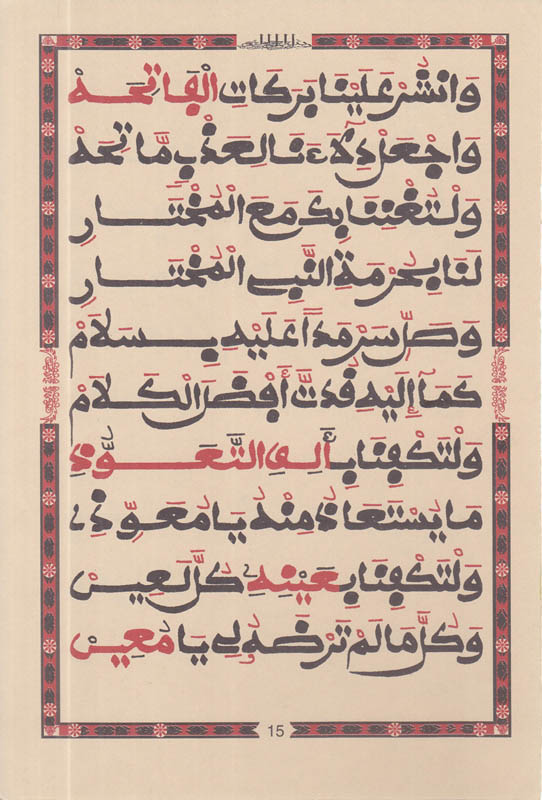 وَانْشُرْ عَلَيْنَا بَرَكَاتِ الْفَاتِحَهْ
وَاجْعَلْ دِلَاءَنَا لِعَذْبٍ مَّاتِحَهْ
وَلْتُغْنِنَا بِكَ مَعَ الْمُخْتَارِ
لَنَا بِحُرْمَةِ النَّبِي الْمُخْتَارِ
وَصَلِّ سَرْمَدًا عَلَيْهِ بِسَلَامْ
كَمَا إِلَيْهِ قُدتَّ أَفْضَلَ الْكَلَامْ
وَلْتَكْفِنَا بِأَلِفِ التَّعَوُّذِ
مَا يُسْتَعَاذُ مِنْهُ يَا مُعَوِّذِي
وَلْتَكْفِنَا بِعَيْنِهِ كُلَّ لَعِينْ
وَكُلَّ مَا لَمْ تَرْضَهُ لِي يَا مُعِينْ
15